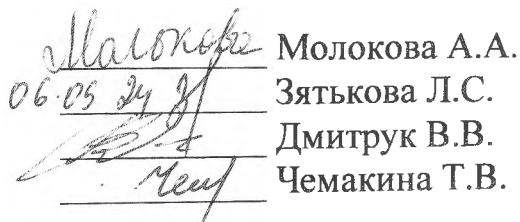 Молокова Молокова А.А.
06.05 24 Зятькова Л.С.
Дмитрук В.В.
Чем Чемакина Т.В.